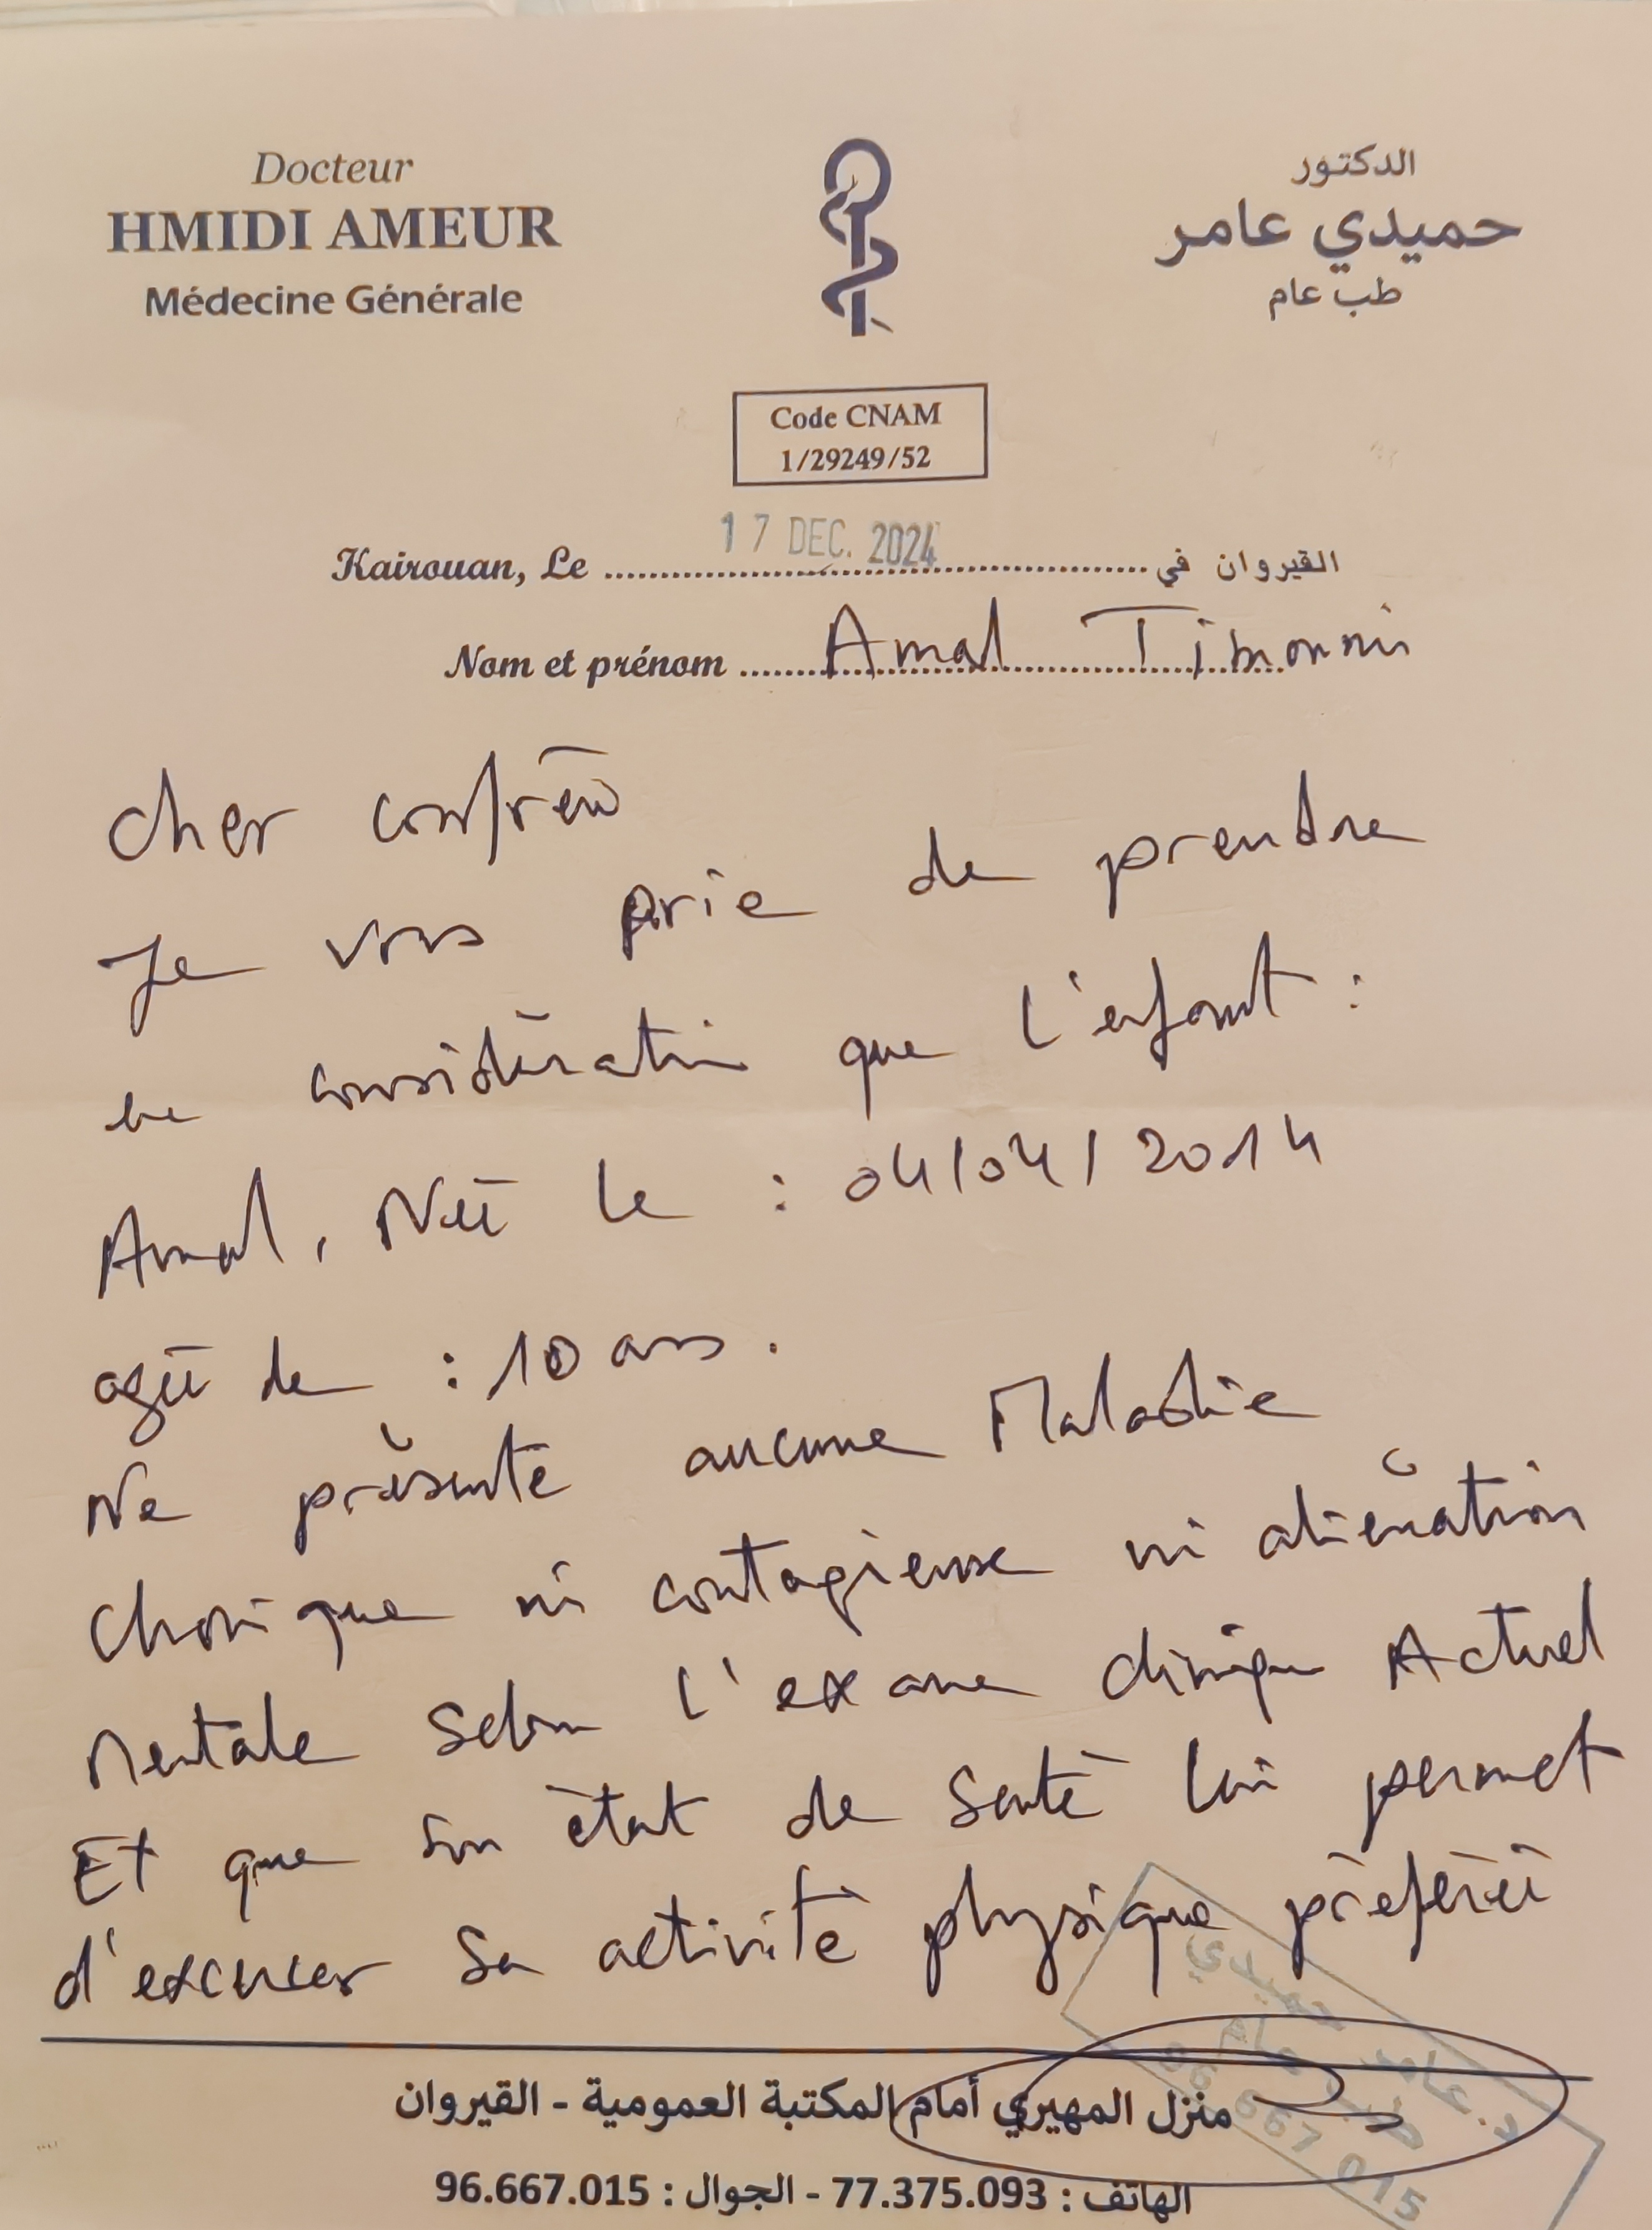 Docteur
HMIDI AMEUR
Médecine Générale
الدكتور
حميدي عامر
طب عام
Code CNAM
1/29249/52
Kairouan, Le 17 DEC. 2024 القيروان في
Nom et prénom Amal
Cher confrère
Je vous prie de prendre
en considération que l'enfant :
Amal, Née le : 04/04/2014
agée de : 10 ans.
Ne présente aucune Maladie
chronique ni contagieuse ni aliénation
Mentale selon l'examen clinique Actuel
Et que son état de santé lui permet
d'exercer sa activité physique préférée
د. عامر حميدي
طب عام
96 667 015
منزل المهيري أمام المكتبة العمومية - القيروان
الهاتف : 77.375.093 - الجوال : 96.667.015